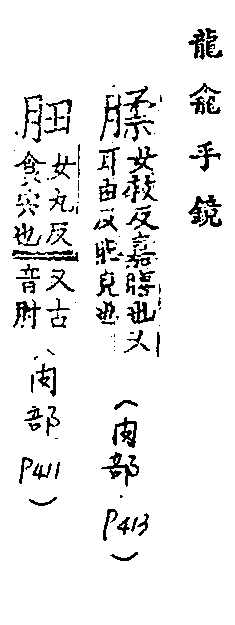 龍龕手鏡
腬女救反嘉膳也又
耳由反肥皃也
（肉部 P413）
女丸反又古
食宍也音肘
（肉部 P411）